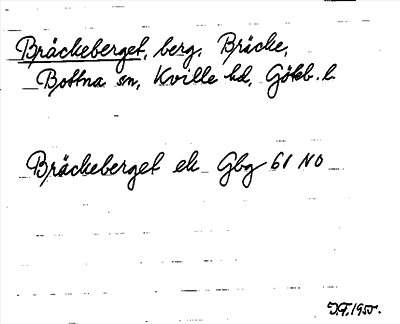 Bräckeberget, berg, Bräcke,
Bottna sn, Kville hd, Göteb. l.
Bräckeberget ek Gbg 61 NO
J.F. 1955.